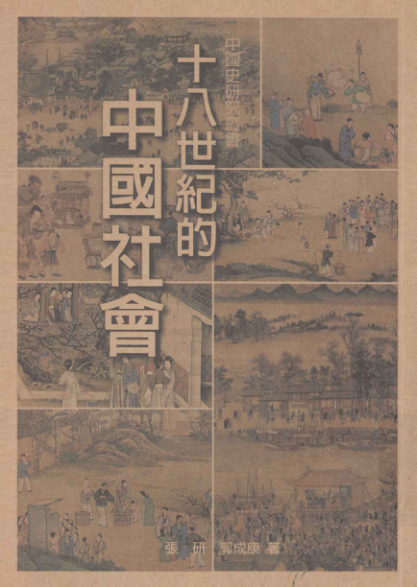 中國史研究叢書
十八世紀的
中國社會
張 研 郭成康 著